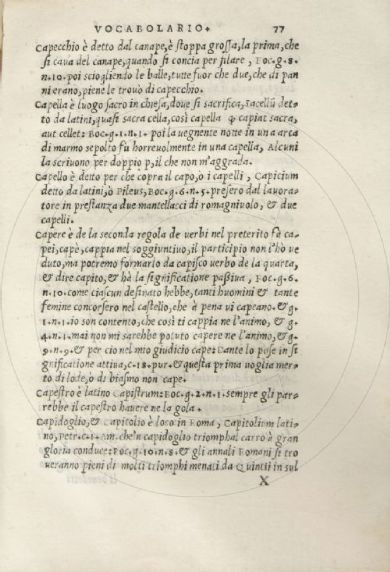 VOCABOLARIO. 77
Capecchio è detto dal canape, è stoppa grossa, la prima, che
si caua del canape, quando si concia per filare, Boc. g. 8.
n. 10. poi sciogliendo le balle, tutte fuor che due, che di pan
ni erano, piene le trouò di capecchio.
Capella è luogo sacro in chiesa, doue si sacrifica, sacellũ det-
to da latini, quasi sacra cella, così capella ꝙ capiat sacra,
aut cellet: Boc. g. 1. n. 1. poi la uegnente notte in una arca
di marmo sepolto fù horreuolmente in una capella, Alcuni
la scriuono per doppio p, il che non m'aggrada.
Capello è detto per che copra il capo, ò i capelli, Capicium
detto da latini, ò Pileus, Boc. g. 6. n. 5. presero dal lauora-
tore in prestanza due mantellacci di romagniuolo, & due
capelli.
Capere è de la seconda regola de uerbi nel preterito fè ca-
pei, capè, cappia nel soggiuntiuo, il participio non l'hò ue
duto, ma potremo formarlo da capisco uerbo de la quarta,
& dire capito, & hà la significatione passiua, Boc. g. 6.
n. 10. come ciascun desinato hebbe, tanti huomini & tante
femine concorsero nel castello, che à pena ui capeano. & g.
1. n. 1. io son contento, che così ti cappia ne l'animo, & g.
4. n. 1. mai non mi sarebbe potuto capere ne l'animo, & g.
9. n. 9. & per cio nel mio giudicio cape: Dante lo pose in si
gnificatione attiua, c. 18. pur. & questa prima uoglia mer-
to di lode, ò di biasmo non cape.
Capestro è latino Capistrum: Boc. g. 2. n. 1. sempre gli par-
rebbe il capestro hauere ne la gola.
Capidoglio, & capitolio è loco in Roma, Capitolium lati-
no, petr. c. 1. Am. che'n capidoglio triomphal carro à gran
gloria conduce: Boc. g. 10. n. 8. & gli annali Romani si tro
ueranno pieni di molti triomphi menati da Quintii in sul
X